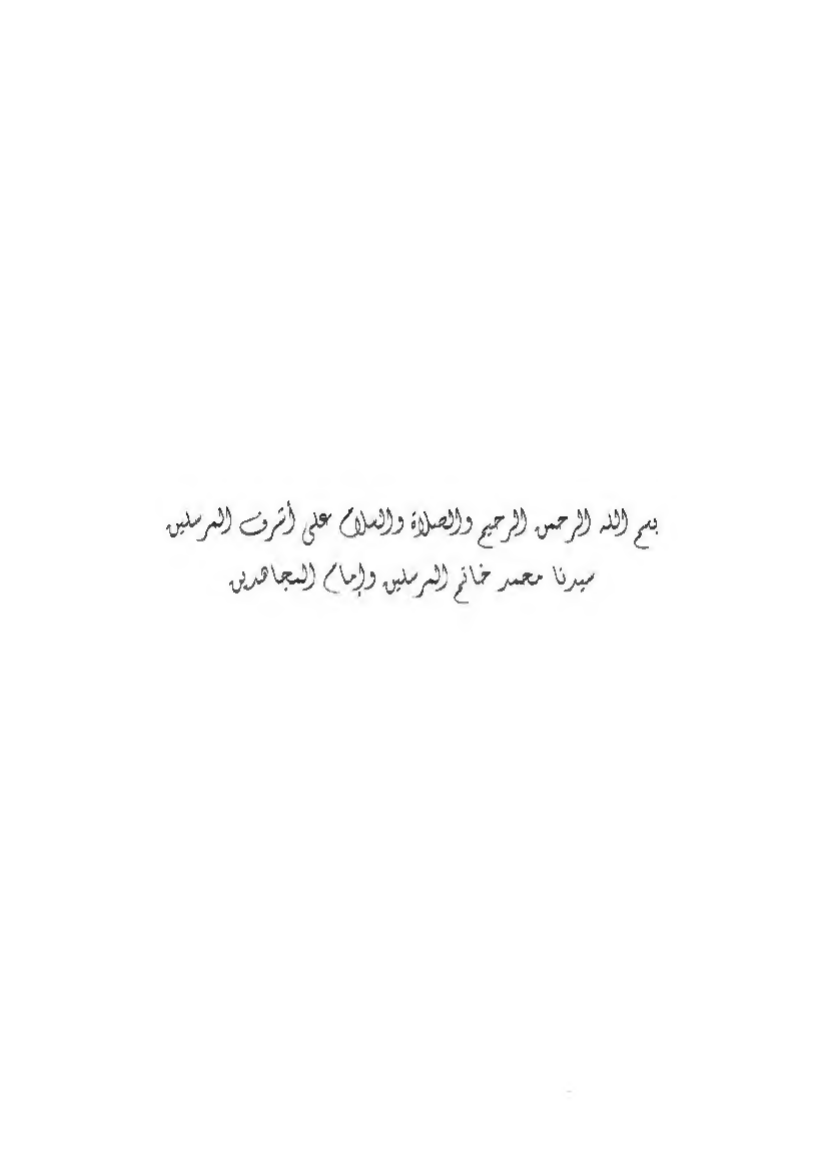 بسم الله الرحمن الرحيم والصلاة والسلام على أشرف المرسلين
سيدنا محمد خاتم المرسلين وإمام المجاهدين